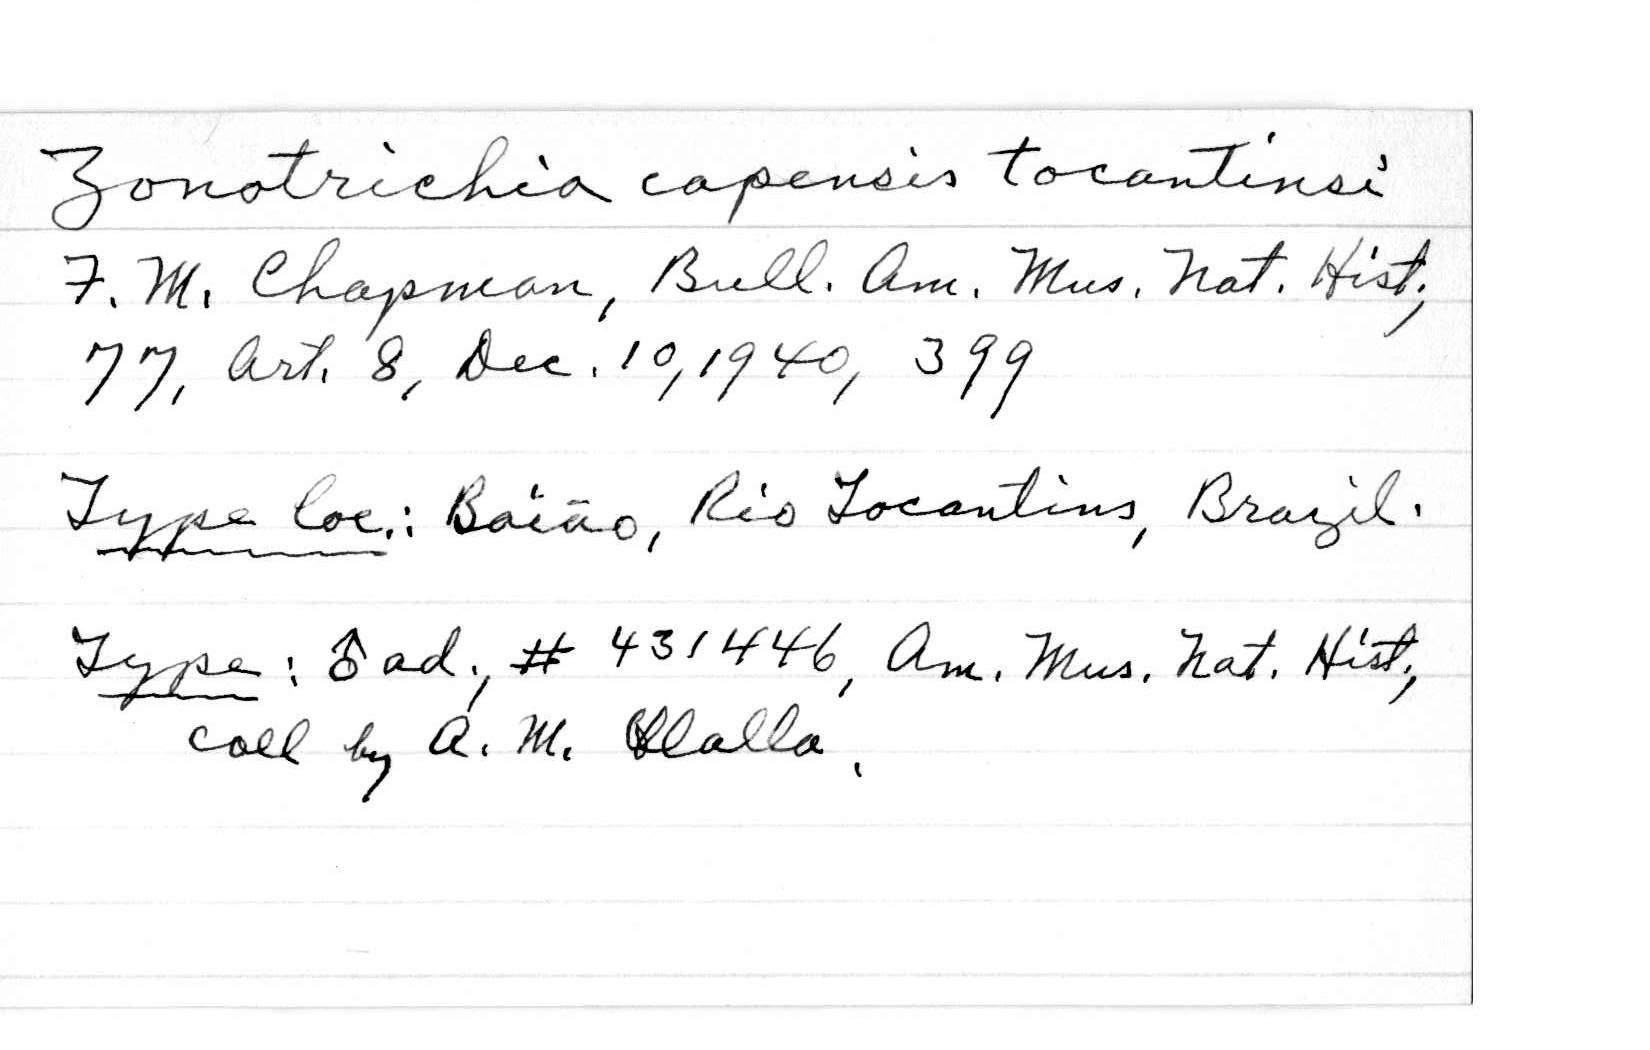 Zonotrichia capensis tocantinsi
F. M. Chapman, Bull. Am. Mus. Nat. Hist.,
77, Art. 8, Dec. 10, 1940, 399
Type loc.: Baião, Rio Tocantins, Brazil.
Type: ♂ ad., # 431446, Am. Mus. Nat. Hist.,
coll by A. M. Olalla.